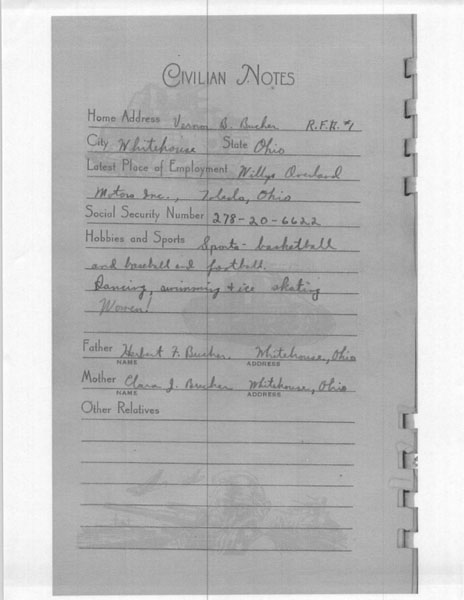 CIVILIAN NOTES
Home Address Vernon D. Bucher R.F.R. #1
City Whitehouse State Ohio
Latest Place of Employment Willys Overland
Motors Inc., Toledo, Ohio
Social Security Number 278-20-6622
Hobbies and Sports Sports - basketball
and baseball and football.
Dancing, swimming & ice skating
Women!
Father Herbert F. Bucher, Whitehouse, Ohio
NAME ADDRESS
Mother Clara J. Bucher Whitehouse, Ohio
NAME ADDRESS
Other Relatives